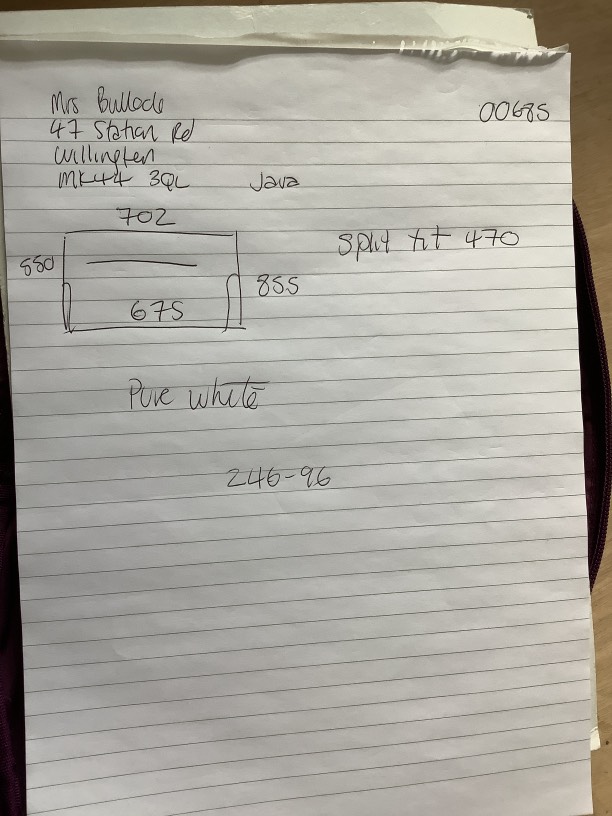 Mrs Bullock
00685
47 Station Rd
Willington
MK44 3QL
Java
702
Split tilt 470
550
855
675
Pure white
246-96